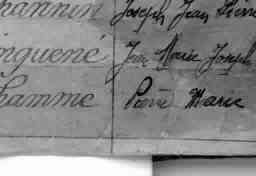 hannin Joseph Jean Pierre
nguené Jean Marie Joseph
hamme Pierre Marie